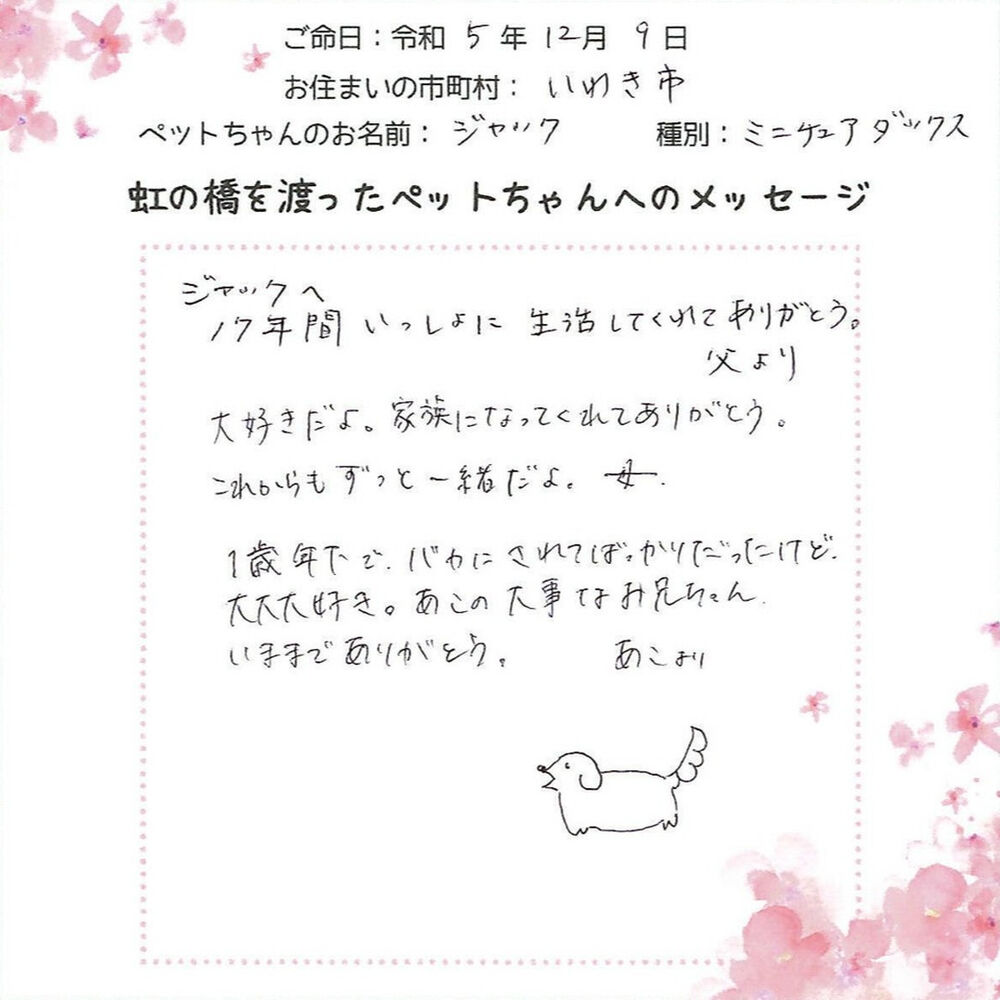 ご命日：令和 5 年 12月 9 日
お住まいの市町村： いわき市
ペットちゃんのお名前： ジャック 種別： ミニチュアダックス
虹の橋を渡ったペットちゃんへのメッセージ
ジャックへ
17年間 いっしょに 生活してくれてありがとう。
父より
大好きだよ。家族になってくれてありがとう。
これからもずっと一緒だよ。 母.
1歳年下で、バカにされてばっかりだったけど、
大大大好き。あこの大事なお兄ちゃん、
いままでありがとう。 あこより